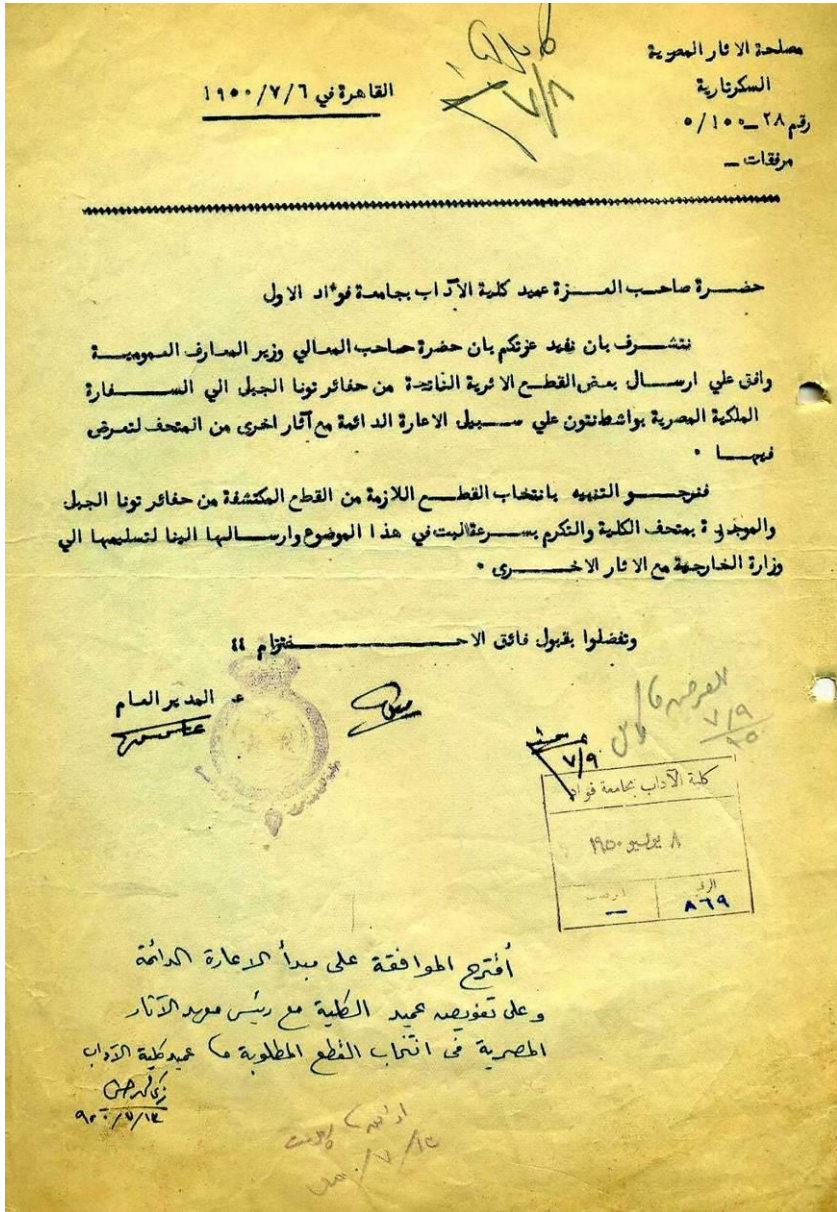 مصلحة الاثار المصرية
السكرتارية
رقم ٢٨ـ ٥/١٠٠
مرفقات ـ
القاهرة في ١٩٥٠/٧/٦
٧/٨
حضـــرة صاحـب العـــزة عميد كلية الآداب بجامعة فؤاد الاول
نتشـــرف بان نفيد عزتكم بان حضرة صاحب المعالي وزير المعارف العموميـــة
وافق علي ارســـال بعض القطـع الاثرية الناتجة من حفائر تونا الجبل الي الســـفارة
الملكية المصرية بواشطنتون علي ســـبيل الاعارة الدائمة مع آثار اخرى من المتحف لتعـرض
فيهـــا ٠
فنرجـــو التنبيه بانتخاب القطـــع اللازمة من القطع المكتشفة من حفائر تونا الجبل
والموجودة بمتحف الكلية والتكرم بســـرعة البت في هذا الموضوع وارســـالها الينا لتسليمها الي
وزارة الخارجية مع الاثار الاخـــرى ٠
وتفضلوا بقبول فائق الاحـــــترام ،،
عـ المدير العـام
العرض
٧/٩
٥٠
٧/٩
كلية الآداب بجامعة فؤاد
٨ يوليو ١٩٥٠
الرقم
٨٦٩
ـ
أقترح الموافقة على مبدأ الاعارة الدائمة
وعلى تفويض عميد الكلية مع رئيس معهد الآثار
المصرية فى انتخاب القطع المطلوبة عميد كلية الآداب